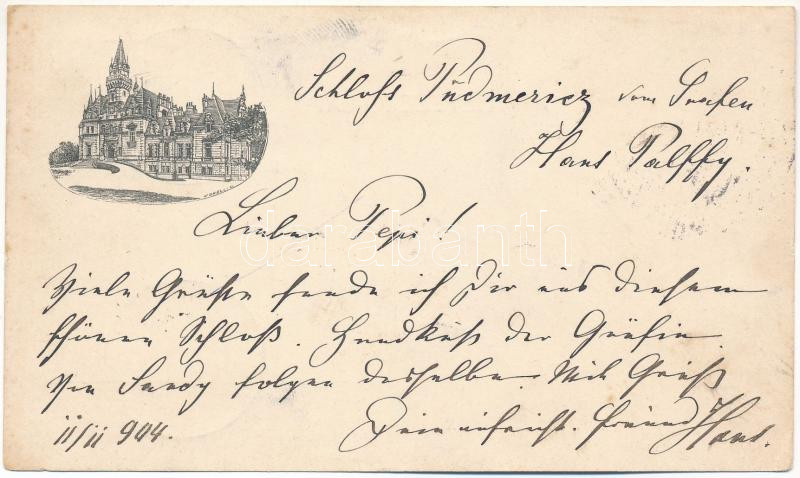 Schloss Pudmericz vom Grafen
Hans Palffy.
Lieber Pepi!
darabanth
Viele Grüße sende ich Dir aus diesem
schönen Schloß. Handkuß der Gräfin.
Von Sandy folgen desselbe. Mit Gruß
Dein aufricht. Freund Hans.
11/11 904.